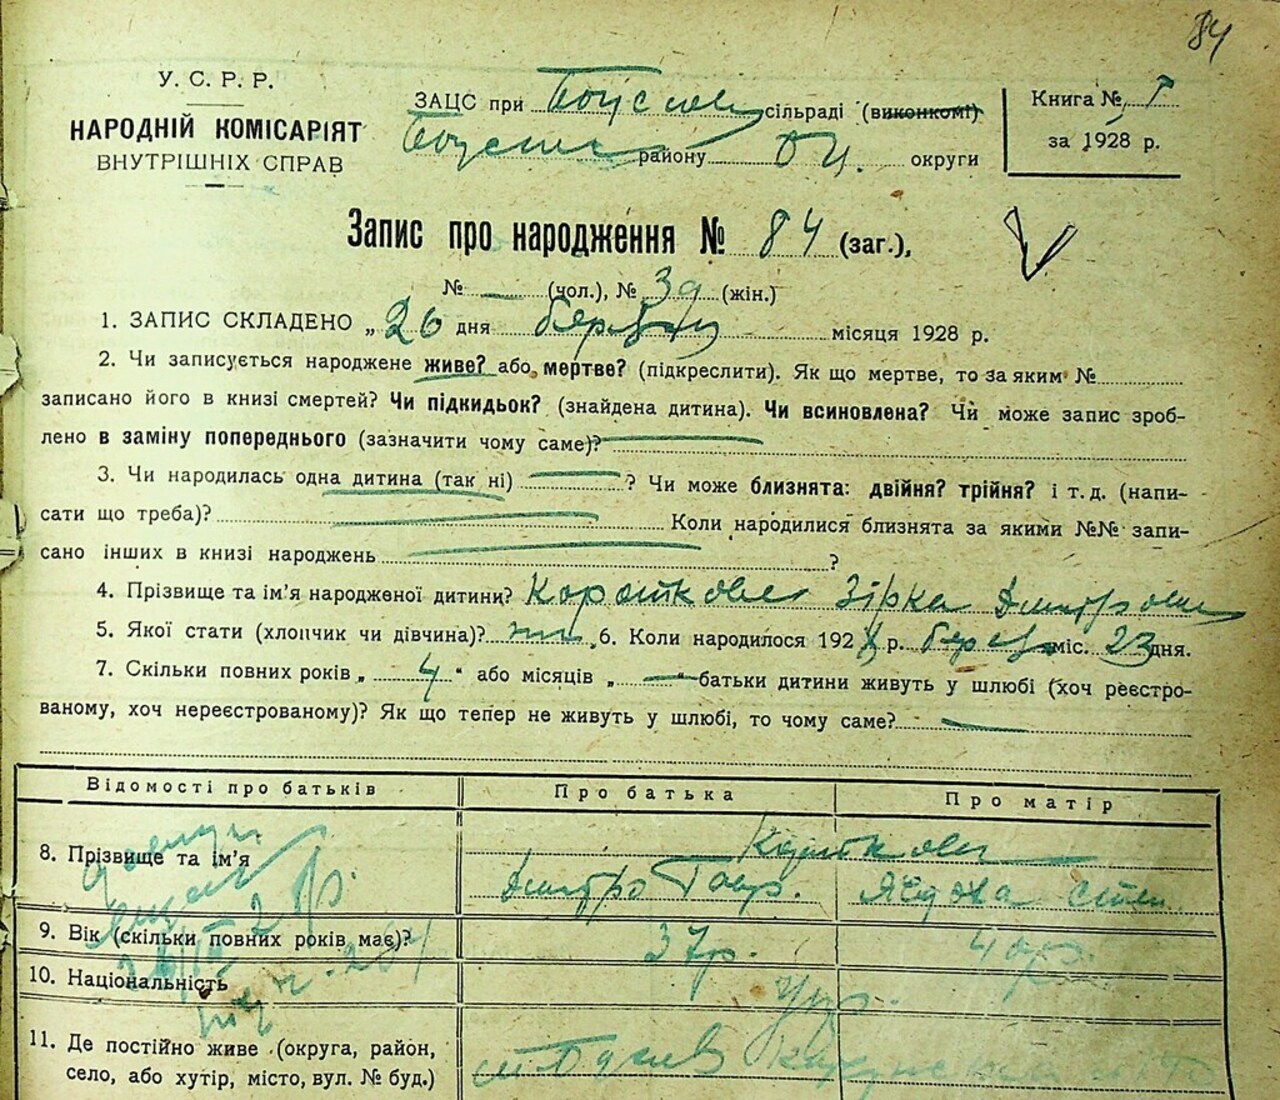 84
У. С. Р. Р.
НАРОДНІЙ КОМІСАРІЯТ
ВНУТРІШНІХ СПРАВ
ЗАЦС при сільраді (виконкомі)
району округи
Книга №
за 1928 р.
Запис про народження № 84 (заг.),
№ — (чол.), № 39 (жін.)
1. ЗАПИС СКЛАДЕНО „ 26 дня березня місяця 1928 р.
2. Чи записується народжене живе? або мертве? (підкреслити). Як що мертве, то за яким №
записано його в книзі смертей? Чи підкидьок? (знайдена дитина). Чи всиновлена? Чи може запис зроб-
лено в заміну попереднього (зазначити чому саме)?
3. Чи народилась одна дитина (так ні) ? Чи може близнята: двійня? трійня? і т. д. (напи-
сати що треба)? Коли народилися близнята за якими №№ запи-
сано інших в книзі народжень ?
4. Прізвище та ім'я народженої дитини? Короткова Зірка Дмитровна
5. Якої стати (хлопчик чи дівчина)? жін 6. Коли народилося 1928 р. березня міс. 23 дня.
7. Скільки повних років „ 4 “ або місяців „ — “ батьки дитини живуть у шлюбі (хоч реєстро-
ваному, хоч нереєстрованому)? Як що тепер не живуть у шлюбі, то чому саме? —
Відомості про батьків Про батька Про матір
8. Прізвище та ім'я
Дмитро
9. Вік (скільки повних років має)? 37 р. 40 р.
10. Національність Укр.
11. Де постійно живе (округа, район,
село, або хутір, місто, вул. № буд.)